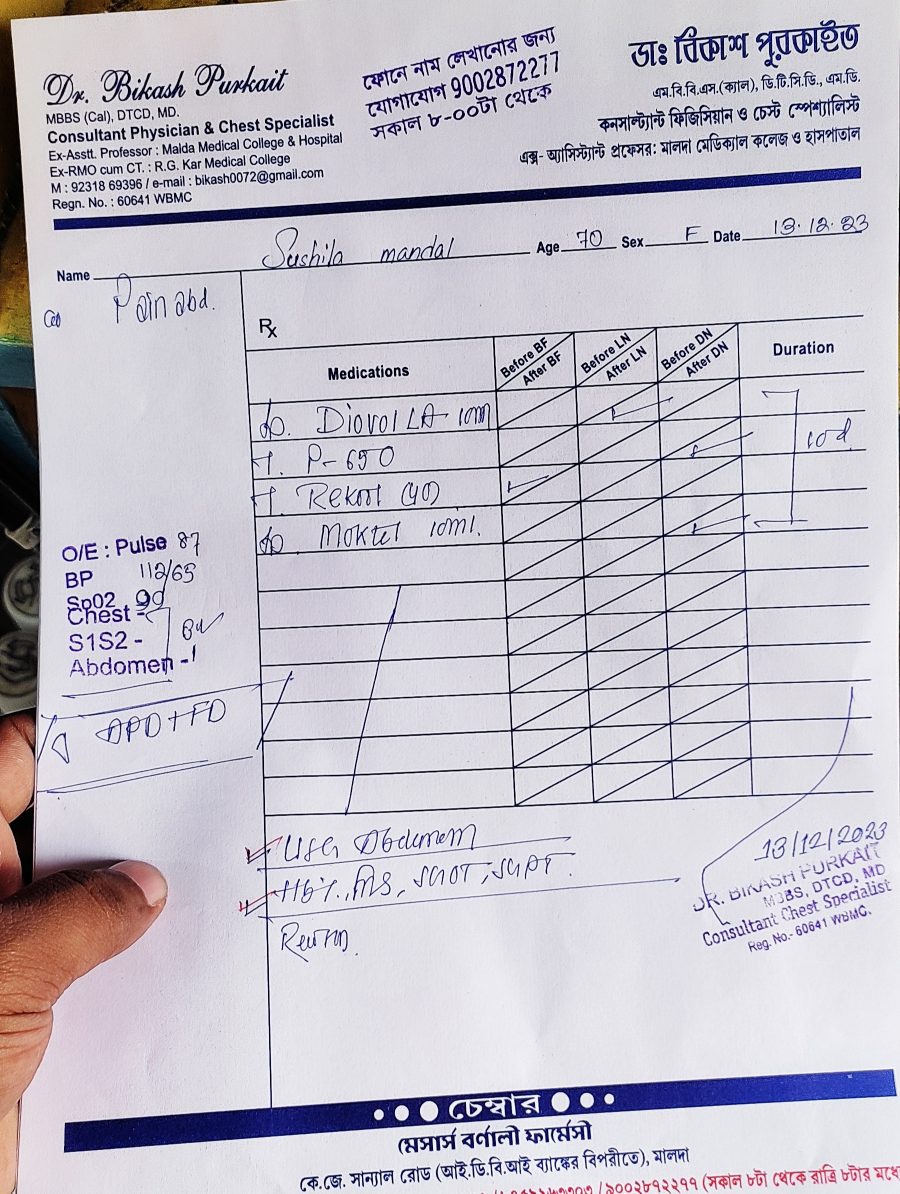 Dr. Bikash Purkait
MBBS (Cal), DTCD, MD.
Consultant Physician & Chest Specialist
Ex-Asstt. Professor : Malda Medical College & Hospital
Ex-RMO cum CT. : R.G. Kar Medical College
M : 92318 69396 / e-mail : bikash0072@gmail.com
Regn. No. : 60641 WBMC
ফোনে নাম লেখানোর জন্য
যোগাযোগ 9002872277
সকাল ৮-০০টা থেকে
ডাঃ বিকাশ পুরকাইত
এম.বি.বি.এস.(ক্যাল), ডি.টি.সি.ডি., এম.ডি.
কনসালট্যান্ট ফিজিসিয়ান ও চেস্ট স্পেশ্যালিস্ট
এক্স- অ্যাসিস্ট্যান্ট প্রফেসর: মালদা মেডিক্যাল কলেজ ও হাসপাতাল
Name Sushila mandal Age 70 Sex F Date 13.12.23
Pain abd.
Rx
Medications Before BF After BF Before LN After LN Before DN After DN Duration
Diovol LA 10ml
T. P-650
10d
T. Rekool (40)
Moktel 10ml.
O/E : Pulse 87
BP 112/65
Sp02
Chest -
S1S2 -
Abdomen -
APD + FD
USG Abdomen
Hb%, FBS, SGOT, SGPT.
13/12/2023
DR. BIKASH PURKAIT
MBBS, DTCD, MD
Consultant Chest Specialist
Reg. No.- 60641 WBMC.
চেম্বার
মেসার্স বর্ণালী ফার্মেসী
কে.জে. সান্যাল রোড (আই.ডি.বি.আই ব্যাঙ্কের বিপরীতে), মালদা
(সকাল ৮টা থেকে রাত্রি ৮টার মধ্যে